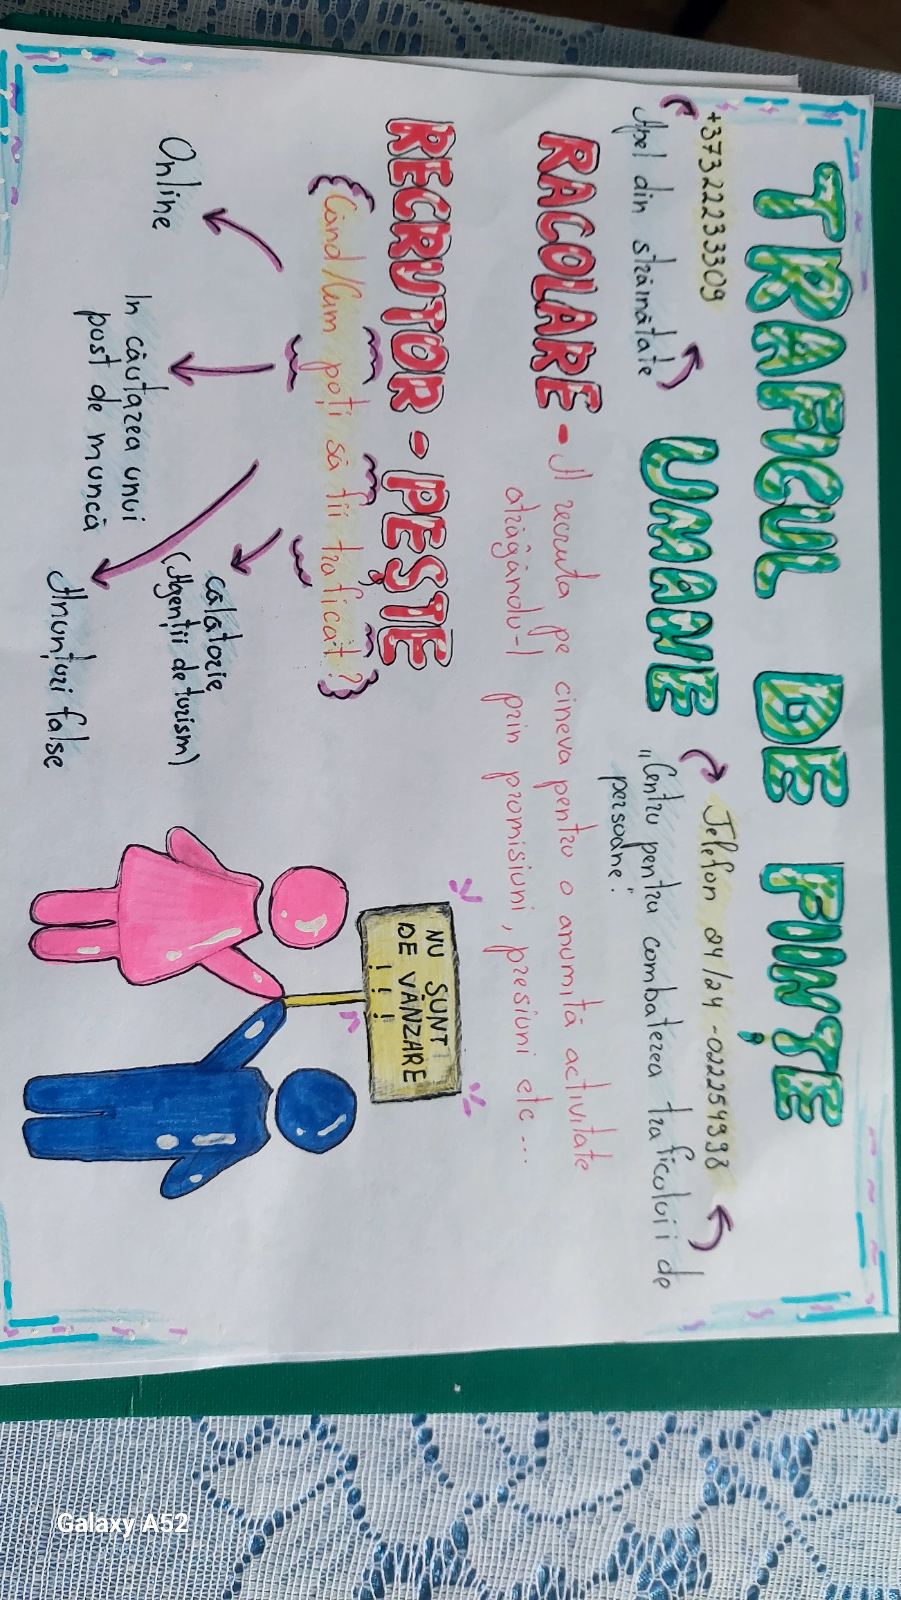 TRAFICUL DE FIINȚE
UMANE
+37322233309
Apel din străinătate
Telefon 24/24 - 022254998
„Centru pentru combaterea traficolui de
persoane".
RACOLARE - A recruta pe cineva pentru o anumită activitate
atrăgându-l prin promisiuni, presiuni etc...
RECRUTOR - PEȘTE
Când/Cum poți să fii traficat?
Online
In căutarea unui
post de muncă
călătorie
(Agenții de turism)
Anunțuri false
NU SUNT
DE VÂNZARE
!!!
Galaxy A52